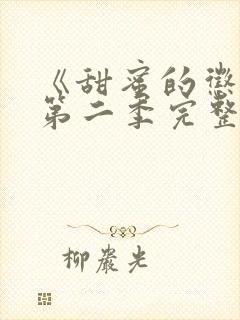 《甜蜜的惩
第二季完整
柳岩光